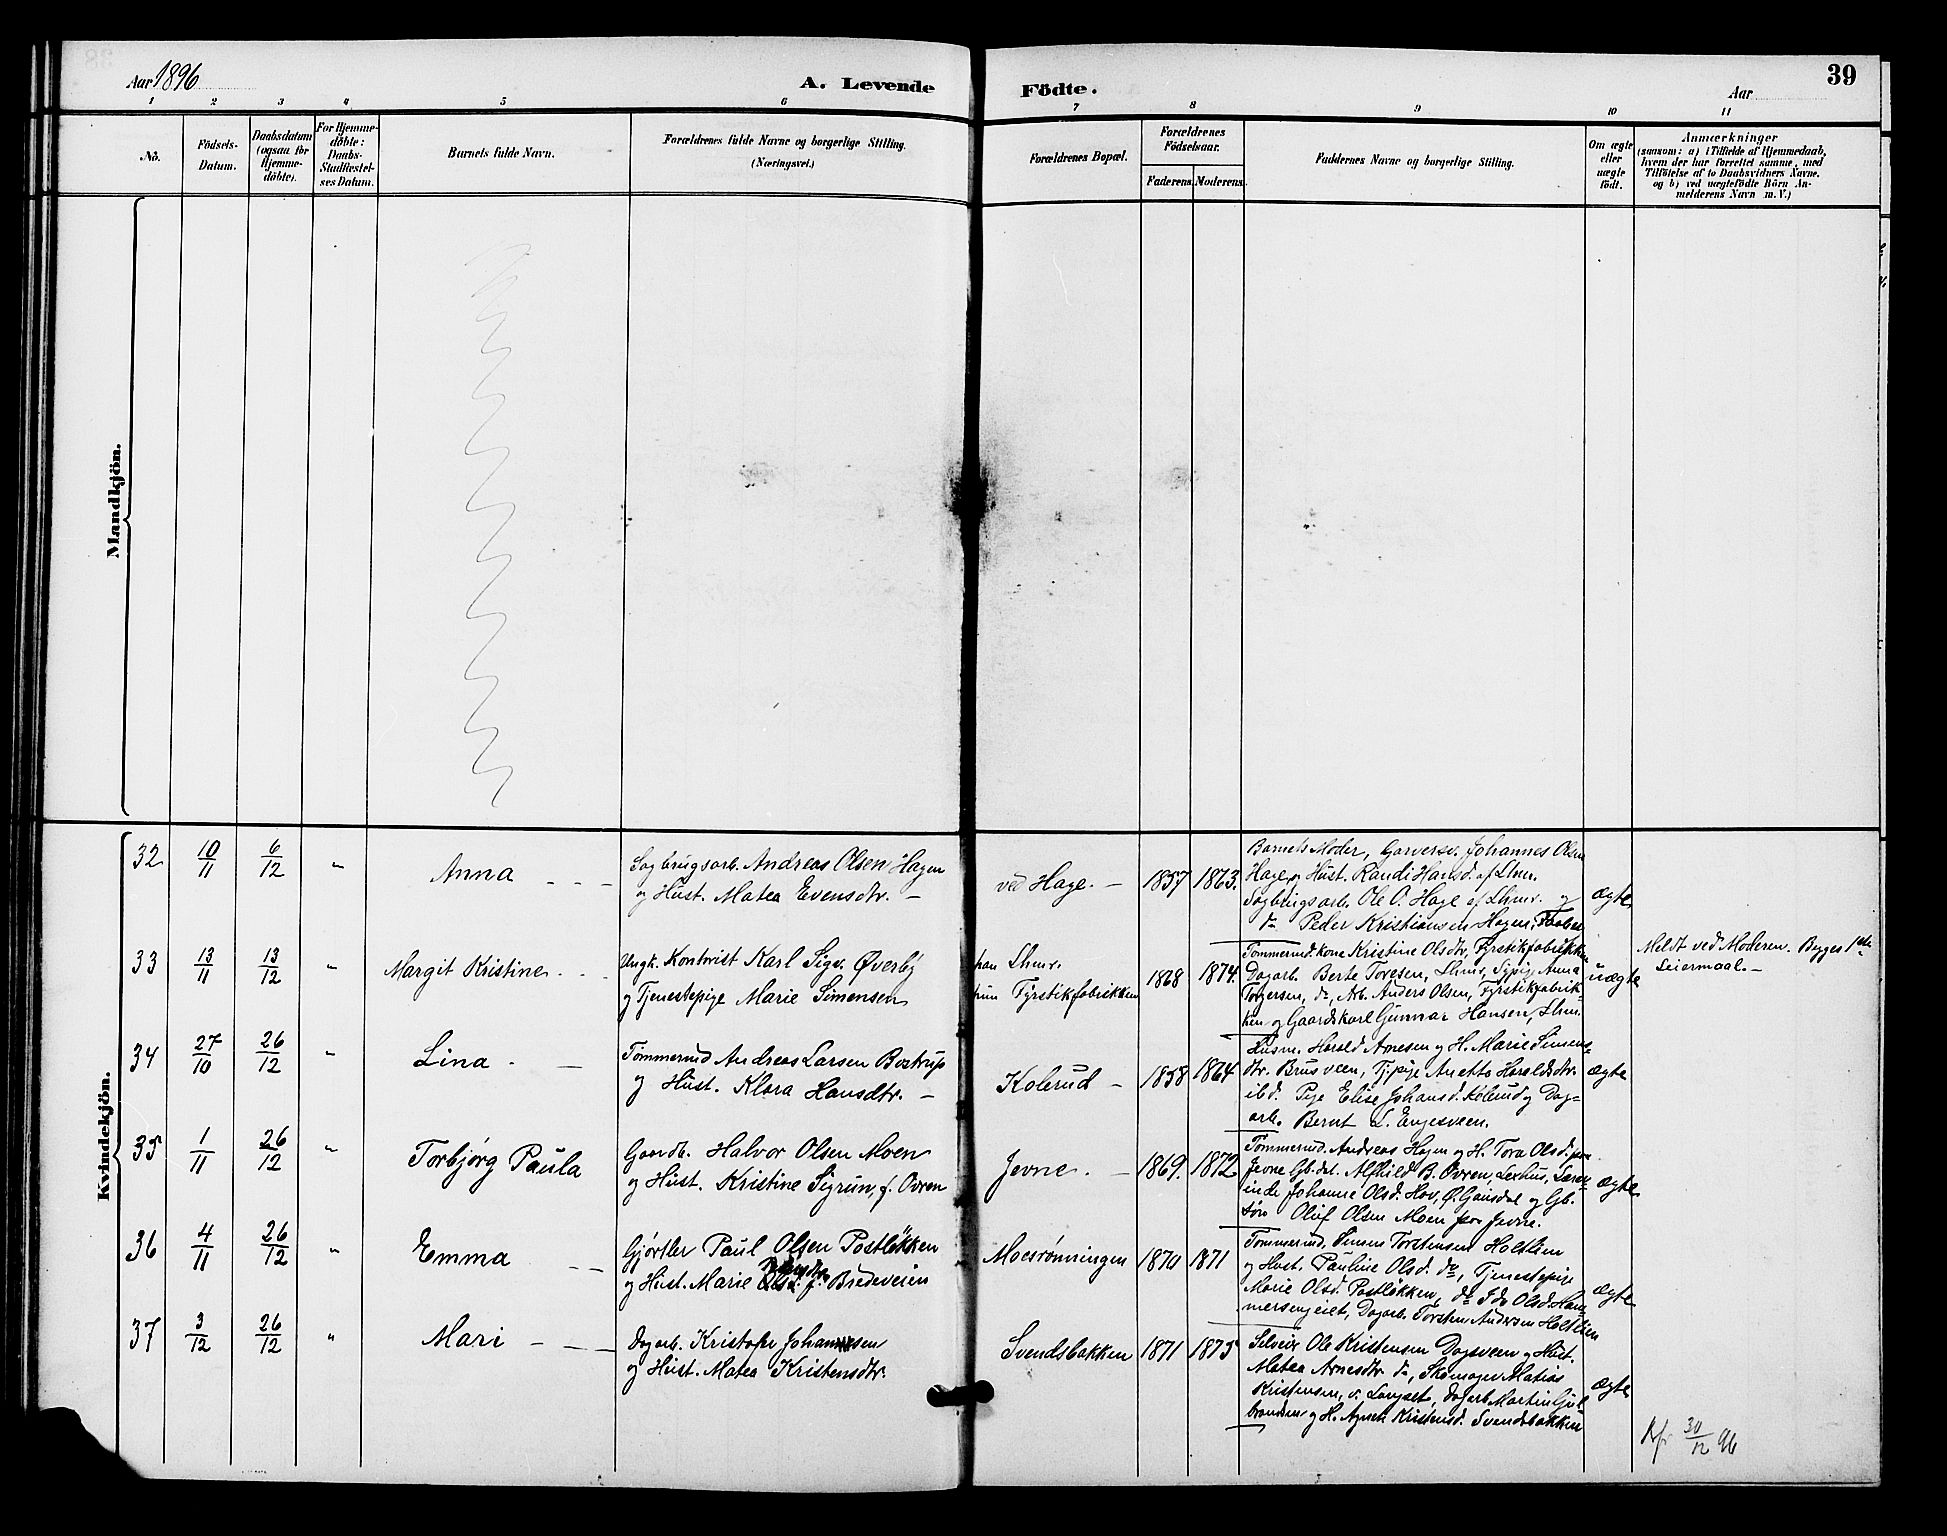 39
Aar 1896
A. Levende
Födte.
Aar
1 2 3 4 5 6 7 8 9 10 11
No.
Födsels-
Datum.
Daabsdatum
(ogsaa for
Hjemme-
döbte).
For Hjemme-
döbte:
Daabs-
Stadfæstel-
ses Datum.
Barnets fulde Navn.
Forældrenes fulde Navne og borgerlige Stilling.
(Næringsvei.)
Forældrenes Bopæl.
Forældrenes
Födselsaar.
Faderens. Moderens.
Faddernes Navne og borgerlige Stilling.
Om ægte
eller
uægte
födt.
Anmærkninger
(saasom: a) i Tilfælde af Hjemmedaab,
hvem der har forrettet samme, med
Tilföielse af to Daabsvidners Navne.
og b) ved uægtefödte Börn An-
melderens Navn m. V.)
Mandkjön.
Kvindekjön.
32 10/11 6/12 " Anna
Sagbrugsarb. Andreas Olsen Hagen
og Hust. Matea Evensdtr.
ved Hage. 1857 1863.
Barnets Moder, Garversv. Johannes Olsen
Hage og Hust. Randi Hansd. af Lhmr.
Sagbrugsarb. Ole O. Hage af Lhmr. og
do Peder Kristiansen Hagen,
ægte
33 13/11 13/12 " Margit Kristine
Ungk. Kontorist Karl Sigv. Øverby
og Tjenestepige Marie Simensen
han Lhmr.
hun Fyrstikfabrikken
1868 1874.
Tømmermd.kone Kristine Olsdtr, Fyrstikfabrikken
Dagarb. Berte Toresen, Lhmr, Sypig. Anna
Torgersen, do, Arb. Anders Olsen, Fyrstikfabrik-
ken og Gaardskarl Gunnar Hansen, Lhmr.
uægte
Meldt ved Moderen. Begges 1ste
Leiermaal.
34 27/10 26/12 " Lina
Tømmermd Andreas Larsen Bostrup
og Hust. Klara Hansdtr.
Kolerud 1858 1864
Husm. Harald Arnesen og H. Marie Simens-
dtr. Brusveen, Tj.pige Anette Haraldsdtr.
ibd. Pige Elise Johansd. Kolerud og Dag-
arb. Bernt L. Engesveen.
ægte
35 1/11 26/12 " Torbjørg Paula
Gaardb. Halvor Olsen Moen
og Hust. Kristine Sigrun, f. Ovren
Jevne. 1869. 1872
Tømmermd. Andreas Hagen og H. Tora Olsd.
Jevne Gb.dat. Alfhild B. Ovren,
inde Johanne Olsd. Hov, Ø. Gausdal og Gb.
søn Oluf Olsen Moen paa Jevne.
ægte
36 4/11 26/12 " Emma
Gjørtler Paul Olsen Postløkken
og Hust. Marie f. Bredeveien
Moesrønningen 1870 1871
Tømmermd. Simen Torstensen Holtlien
og Hust. Pauline Olsd. do, Tjenestepige
Marie Olsd. Postløkken, do Ida Olsd. Ham-
mersengeiet, Dagarb. Torsten Andersen Holtlien
ægte
37 3/12 26/12 " Mari
Dagarb. Kristofer Johannesen
og Hust. Matea Kristensdtr.
Svendsbakken 1871 1875
Selveier Ole Kristensen Dagsveen og Hust.
Matea Arnesdtr. do, Skomager Matias
Kristensen, v. Langset, Dagarb Martin Gul-
brandsen og H. Agnete Kristensd. Svendsbakken
ægte
30/12 96